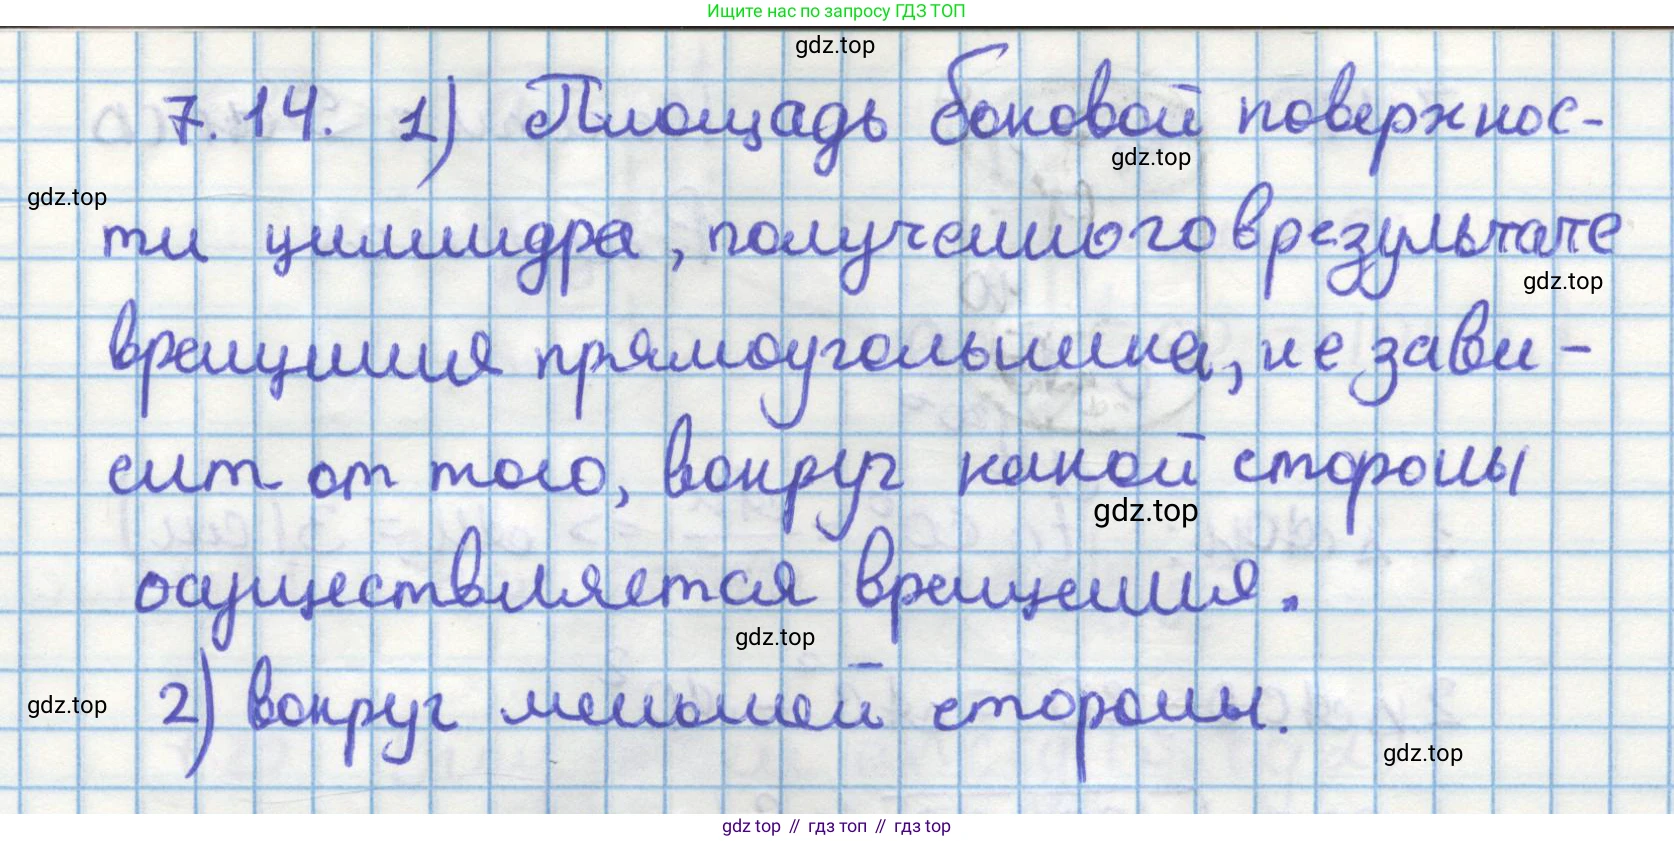 Ищите нас по запросу ГДЗ ТОП
gdz.top
7.14. 1) Площадь боковой поверхнос-
gdz.top
gdz.top
ти цилиндра, полученного в результате
gdz.top
вращения прямоугольника, не зави-
сит от того, вокруг какой стороны
gdz.top
осуществляется вращения.
gdz.top
2) вокруг меньшей стороны.
gdz.top
gdz.top
gdz top // гдз топ // гдз top